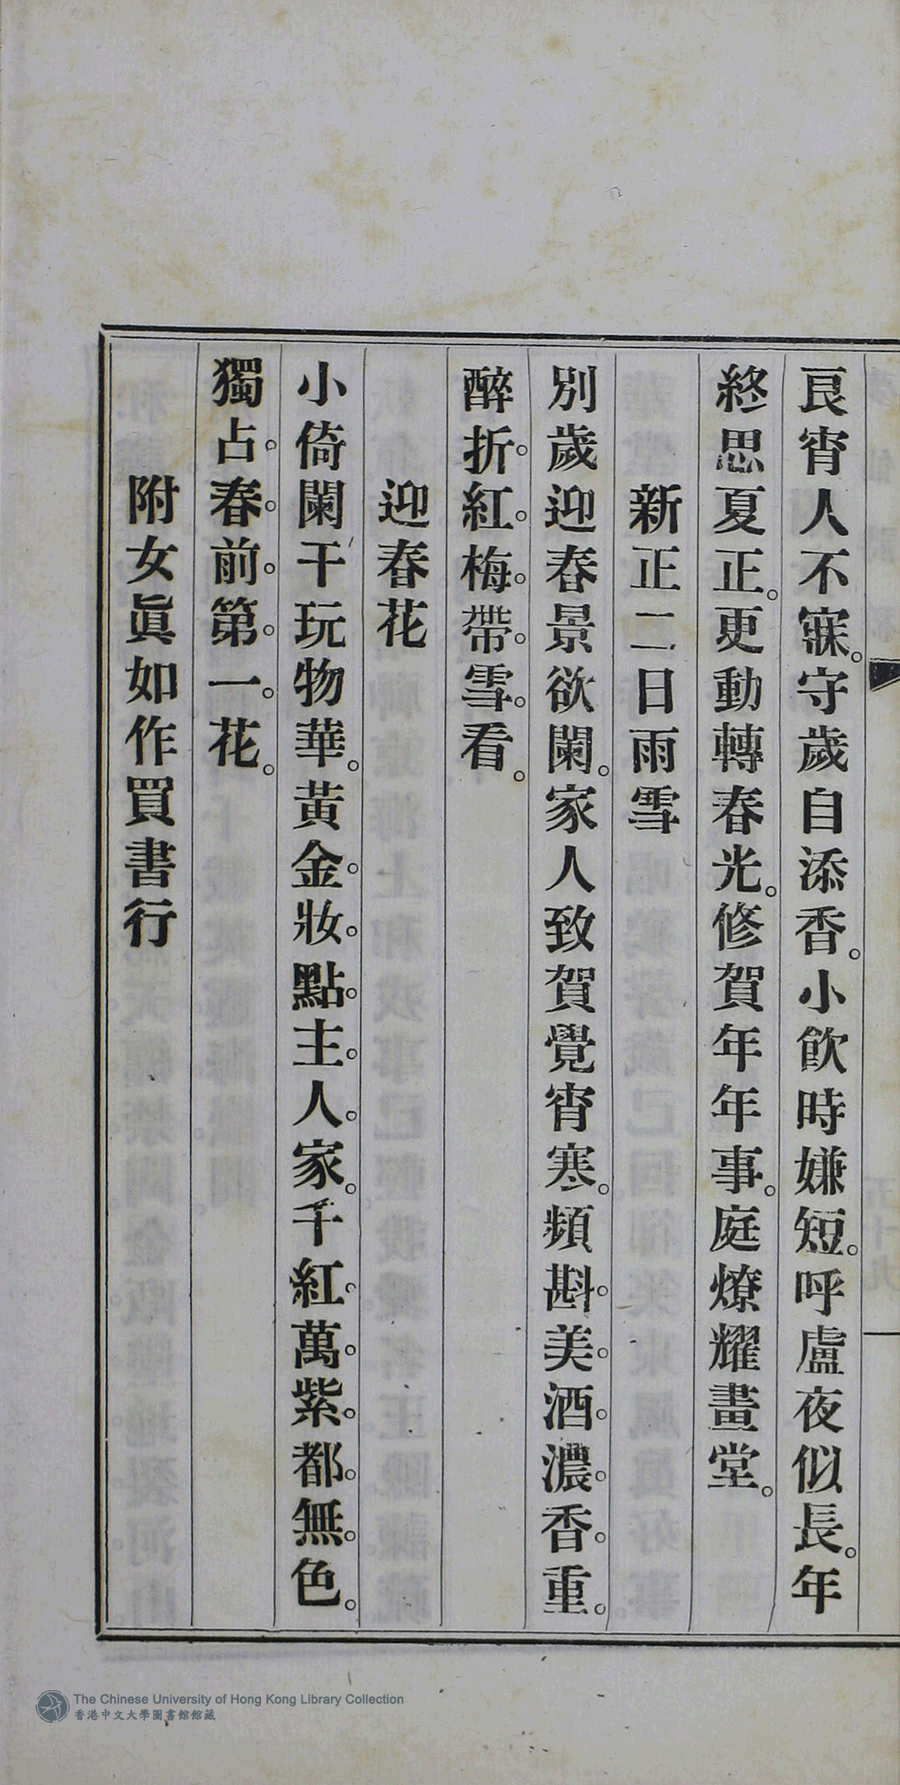 良宵人不寐。守歲自添香。小飲時嫌短。呼盧夜似長。年
終思夏正。更動轉春光。修賀年年事。庭燎耀畫堂。
新正二日雨雪
別歲迎春景欲闌。家人致賀覺宵寒。頻斟美酒濃香重。
醉折紅梅帶雪看。
迎春花
小倚闌干玩物華。黃金妝點主人家。千紅萬紫都無色。
獨占春前第一花。
附女眞如作買書行
The Chinese University of Hong Kong Library Collection
香港中文大學圖書館館藏